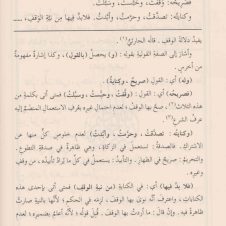 فصريحُه: وَقَفْتُ، وحَبَّسْتُ، وسَبَّلْتُ.
وكنايتُه: تصدَّقْتُ، وحرَّمْتُ، وأبَّدْتُ. فلابدَّ فيها مِن نيَّةِ الوَقْفِ،
يفيدُ دلالةَ الوقفِ. قاله
وأشارَ إلى الصفةِ القوليةِ بقوله: (و) يحصلُ (بالقولِ)، وكذا إشارةٌ مفهومةٌ
من أخرسَ.
(وله) أي: القولِ (صريحٌ، وكنايةٌ).
(فصريحُه) أي: القول: (وَقَفْتُ، وحبَّسْتُ، وسبَّلْتُ) فمتى أتى بكلمةٍ من
هذه الثلاثِ، صحَّ بها الوقفُ؛ لعدم احتمالِ غيرِه بعُرفِ الاستعمالِ المنضمِّ إليه
عرفُ الشرعِ.
(وكنايتُه: تصدَّقْتُ، وحرَّمْتُ، وأبَّدْتُ) لعدم خلوصِ كلٍّ منها عن
الاشتراكِ. فالصدقةُ: تستعملُ في الزكاةِ، وهي ظاهرةٌ في صدقةِ التطوع.
والتحريمُ: صريحٌ في الظهارِ. والتأبيدُ: يستعملُ في كلِّ ما يُرادُ تأبيدُه، من وقفٍ
وغيرِه.
(فلا بدَّ فيها) أي: في الكنايةِ (من نيةِ الوقفِ) فمتى أتى بإحدى هذه
الكناياتِ، واعترف أنه نوى بها الوقفَ، لزمَه في الحكم؛ لأنها بالنيةِ صارتْ
ظاهرةً فيه. وإنْ قال: ما أردتُ بها الوقفَ. قُبِلَ قولُه؛ لأنه أعلمُ بضميرِه؛ لعدم